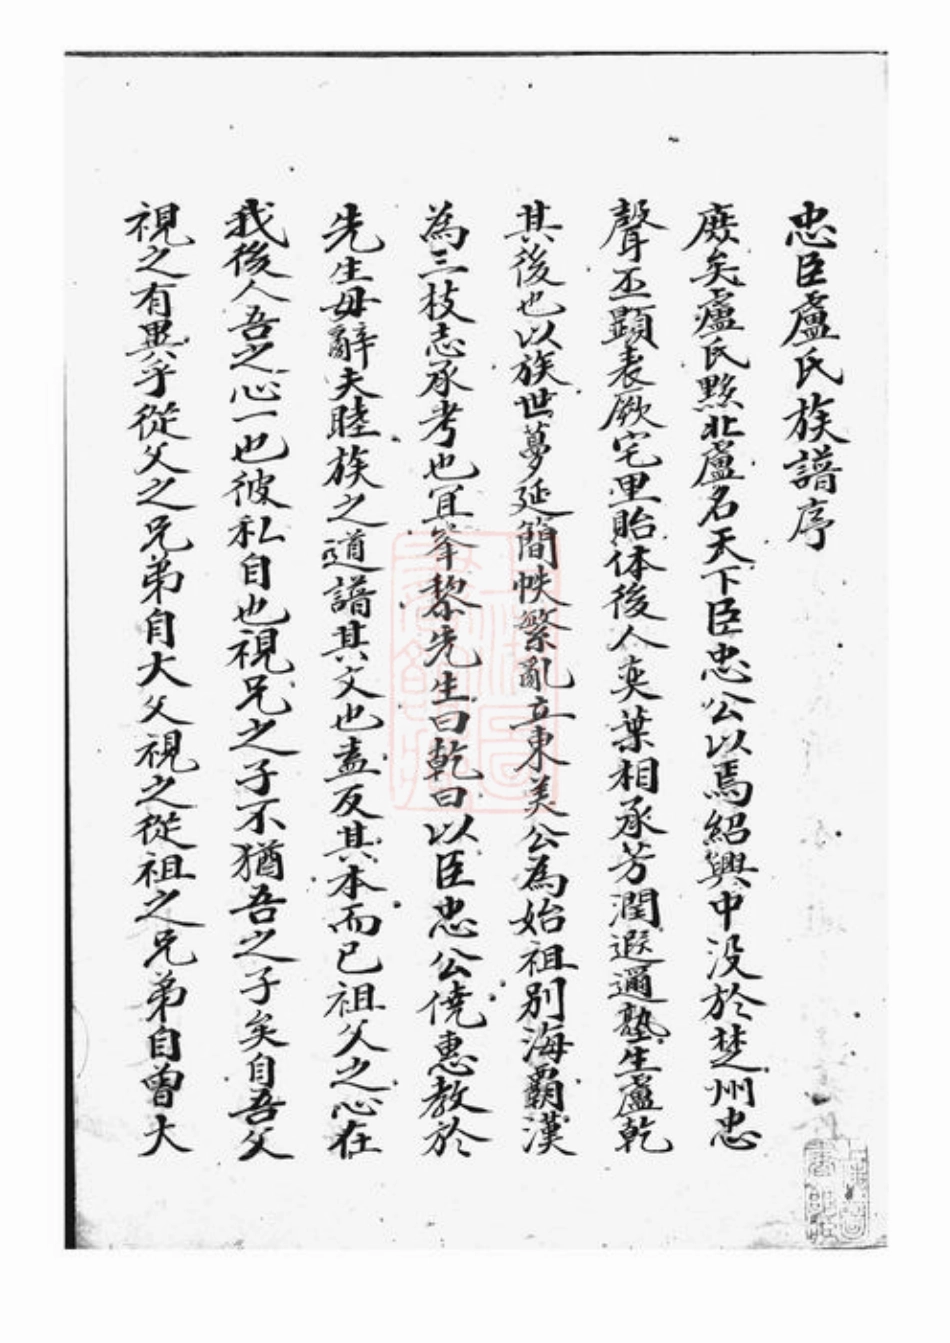 忠臣盧氏族譜序
廢矣盧氏黟北盧名天下臣忠公以焉紹興中没於楚州忠
聲丕顯表厥宅里貽体後人奕葉相承芳潤遐邇塾生盧乾
其後也以族世蔓延簡帙繁亂立東美公為始祖別海霸漢
為三枝志承考也宜峯黎先生曰乾曰以臣忠公僥惠教於
先生毋辭夫睦族之道譜其文也盍反其本而已祖父之心在
我後人吾之心一也彼私自也視兄之子不猶吾之子矣自吾父
視之有異乎從父之兄弟自大父視之從祖之兄弟自曾大